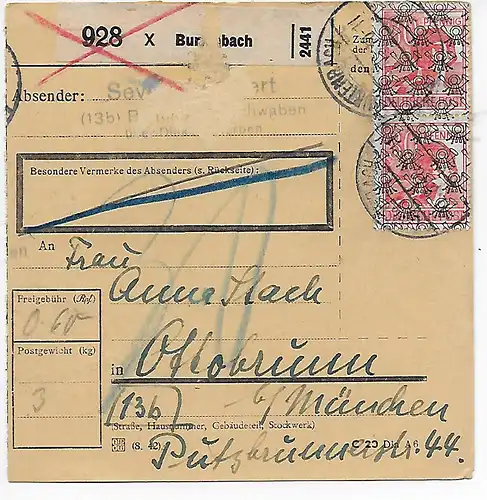 928 X Bur bach 2441
Absender:
(13b) B Schwaben
Besondere Vermerke des Absenders (s. Rückseite):
An
Frau
Anna Stach
Freigebühr (Rpf.)
0.60
Postgewicht (kg)
3
in Ottobrunn
(13b) b/ München
(Straße, Hausnummer, Gebäudeteil, Stockwerk)
(8. 42) C 20 Din A 6
Putzbrunnerstr. 44.
PFENNIG
DEUTSCHE POST